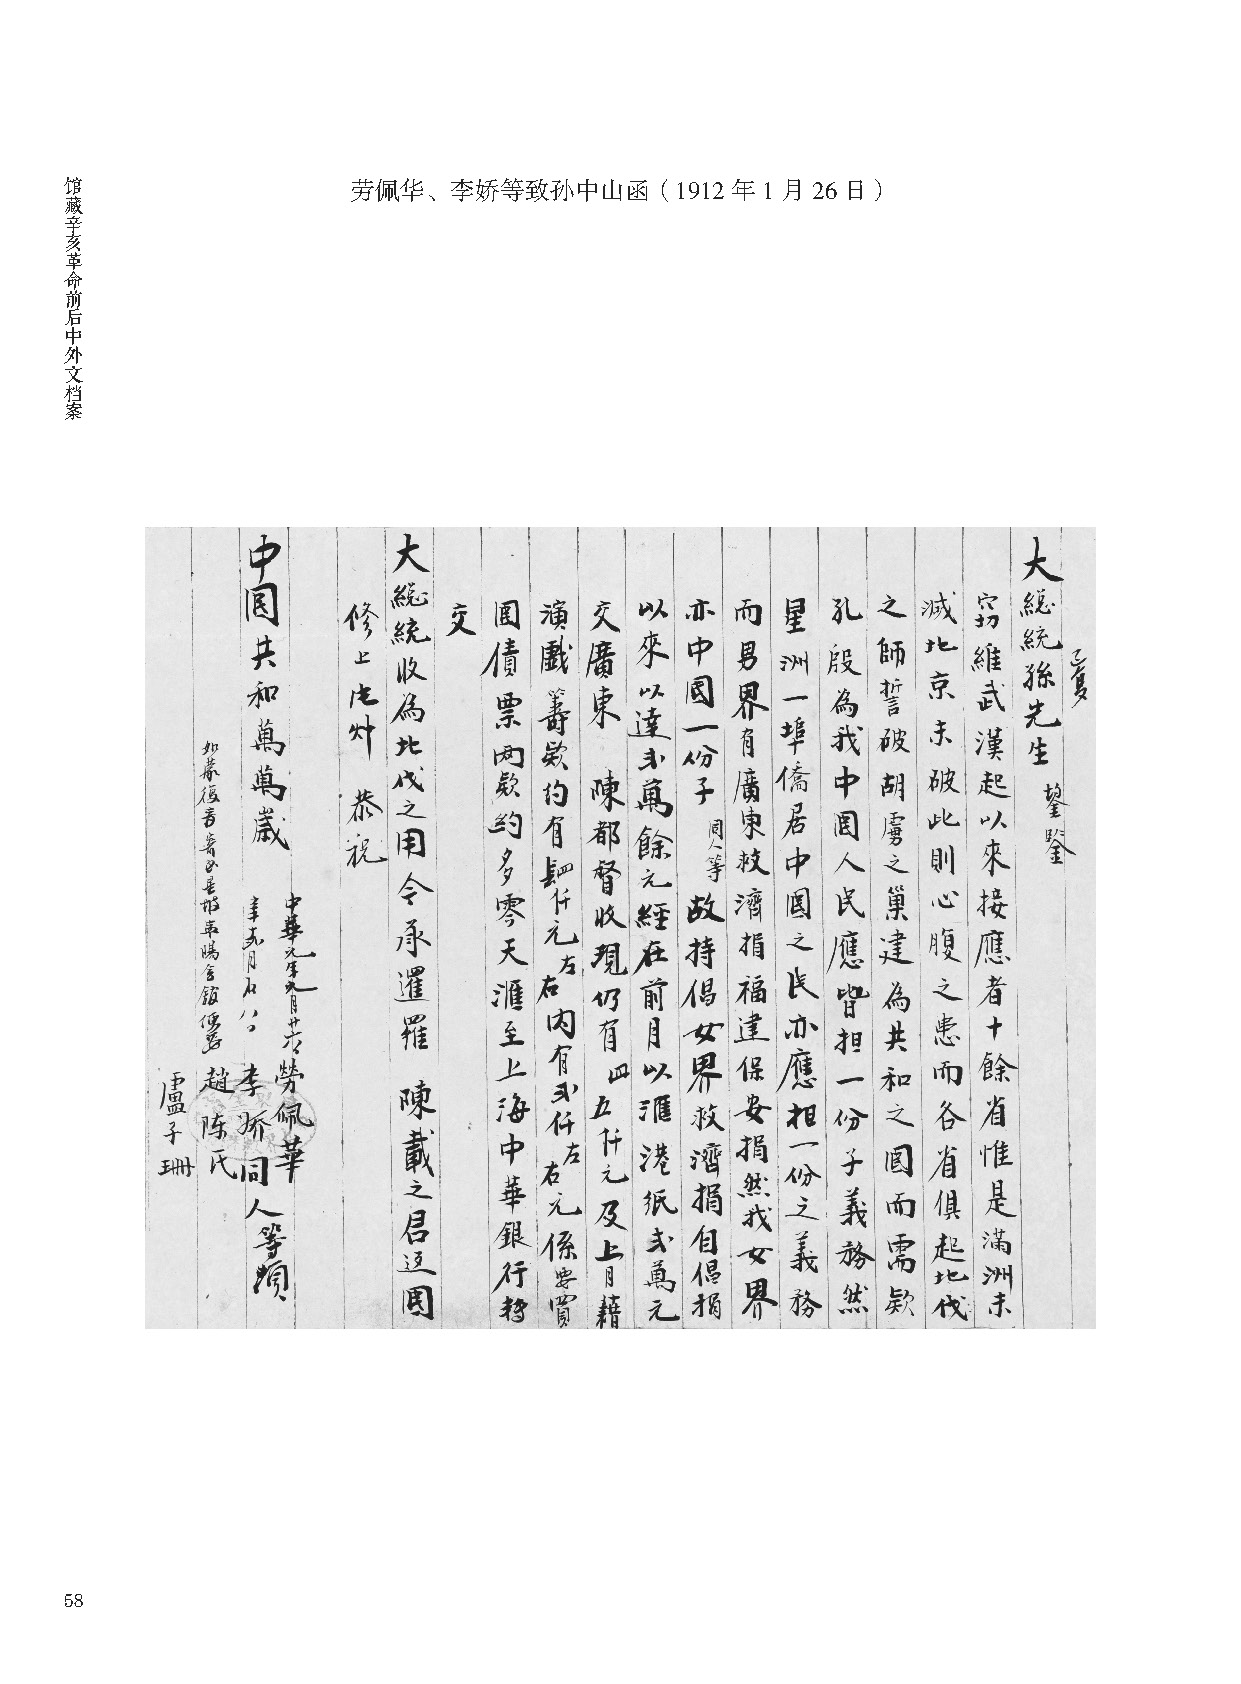 馆藏辛亥革命前后中外文档案
劳佩华、李娇等致孙中山函（1912 年 1 月 26 日）
已复
大總統孫先生 鋆鑒
窃維武漢起以來接應者十餘省惟是滿洲未
滅北京未破此則心腹之患而各省俱起北伐
之師誓破胡虜之巢建為共和之國而需欵
孔殷為我中國人民應皆担一份子義務然
星洲一埠僑居中國之民亦應担一份之義務
而男界有廣東救濟捐福建保安捐然我女界
亦中國一份子 同人等 故持倡女界救濟捐自倡捐
以來以達弍萬餘元經在前月以滙港紙弍萬元
交廣東 陳都督收現仍有四五仟元及上月藉
演戲籌欵約有肆仟元左右内有弍仟左右元係要買
國債票两欵約多零天滙至上海中華銀行轉
交
大總統收為北伐之用令承暹羅 陳載之君返國
修上 恭祝
中國共和萬萬歲
中華元年元月廿六 勞佩華
李娇同人等頓
如蒙復音 星坡 會館
趙陈氏
盧子珊
58